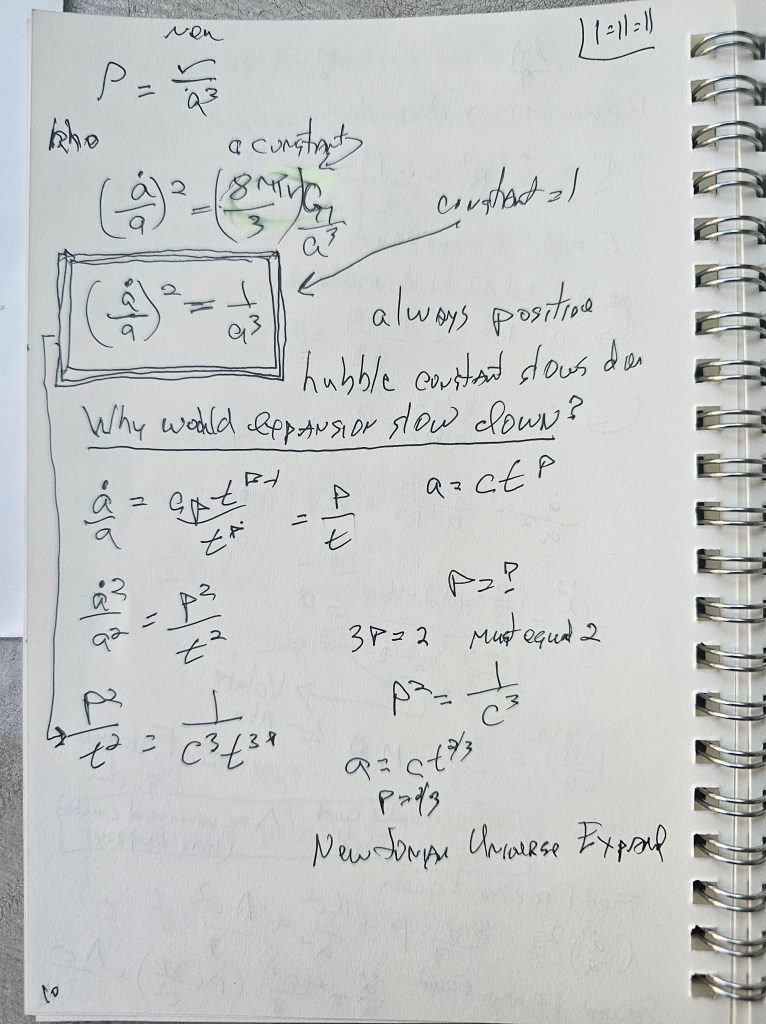 ρ = ν/a³
a constant
(ȧ/a)² = (8πν/3) G 1/a³
constant = 1
(ȧ/a)² = 1/a³
always positive
hubble constant slows
Why would expansion slow down?
ȧ/a = cp t^(p-1)/t^p = p/t
a = ct^p
ȧ²/a² = p²/t²
P = ?
3P = 2 Must equal 2
p²/t² = 1/c³t³ᵖ
p² = 1/c³
a = ct^2/3
P = 2/3
Newtonian Universe Expand
10